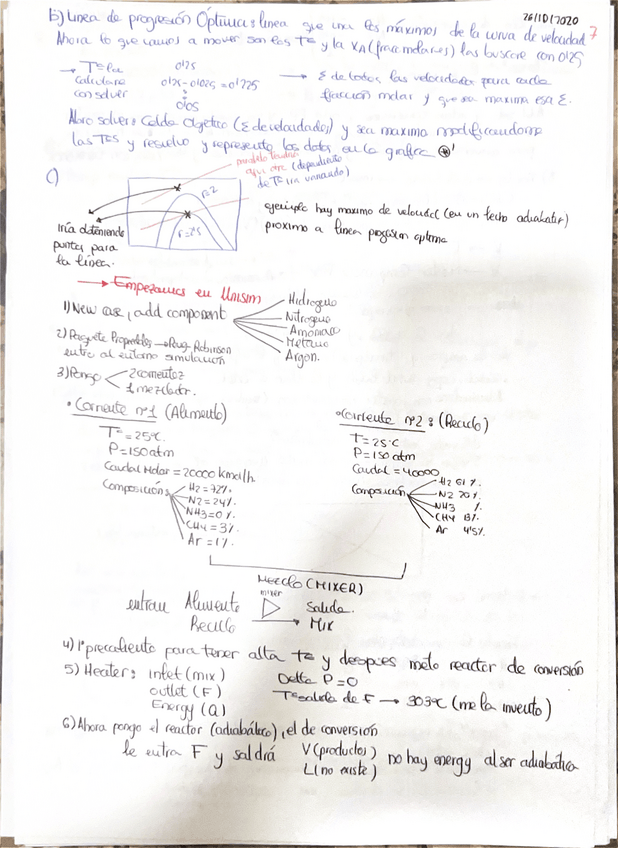 26/10/2020
7
b) Linea de progresión Óptima: linea que una los máximos de la curva de velocidad
Ahora lo que vamos a mover son las Tª y la XA (frac molares) las buscare con 0'25
→ Tª la calculare con solver
0'25
0'25 - 0'025 = 0'225
0'05
→ Σ de todas las velocidades para cada fracción molar y que sea maxima esa Σ.
Abro solver: Celda Objetivo (Σ de velocidades) y sea maximo modificandome
las TªS y resuelvo y represento los datos en la grafica
c)
modelo tendra
que ser (dependiente
de Tª ira variando)
r=2
r=2'5
Iría obteniendo
puntos para
la línea.
ejemplo hay maximo de velocidad (en un lecho adiabatico)
proximo a linea progresion optima
→ Empezamos en Unisim
1) New case, add component
Hidrogeno
Nitrogeno
Amoniaco
Metano
Argon.
2) Paquete Propiedades → Peng Robinson
entro al entorno simulación
3) Pongo
2 corrientes
1 mezclador.
• Corriente nº1 (Alimento)
Tª = 25ºC.
P = 150 atm
Caudal Molar = 20000 kmol/h
Composición
H2 = 72%.
N2 = 24%.
NH3 = 0%.
CH4 = 3%.
Ar = 1%.
• Corriente nº2: (Reciclo)
T = 25ºC
P = 150 atm
Caudal = 40000
Composición
H2 61%.
N2 20%.
NH3 %.
CH4 13%.
Ar 4'5%.
Mezclo (MIXER)
entran Alimento
Reciclo
mixer
Salida.
Mix
4) 1º precaliento para tener alta Tª y despues meto reactor de conversión
5) Heater: inlet (mix)
outlet (F)
Energy (Q)
Delta P = 0
Tª salida de F → 303ºC (me la invento)
6) Ahora pongo el reactor (adiabático), el de conversión
le entra F y saldrá
V (productos)
L (no existe)
no hay energy al ser adiabática